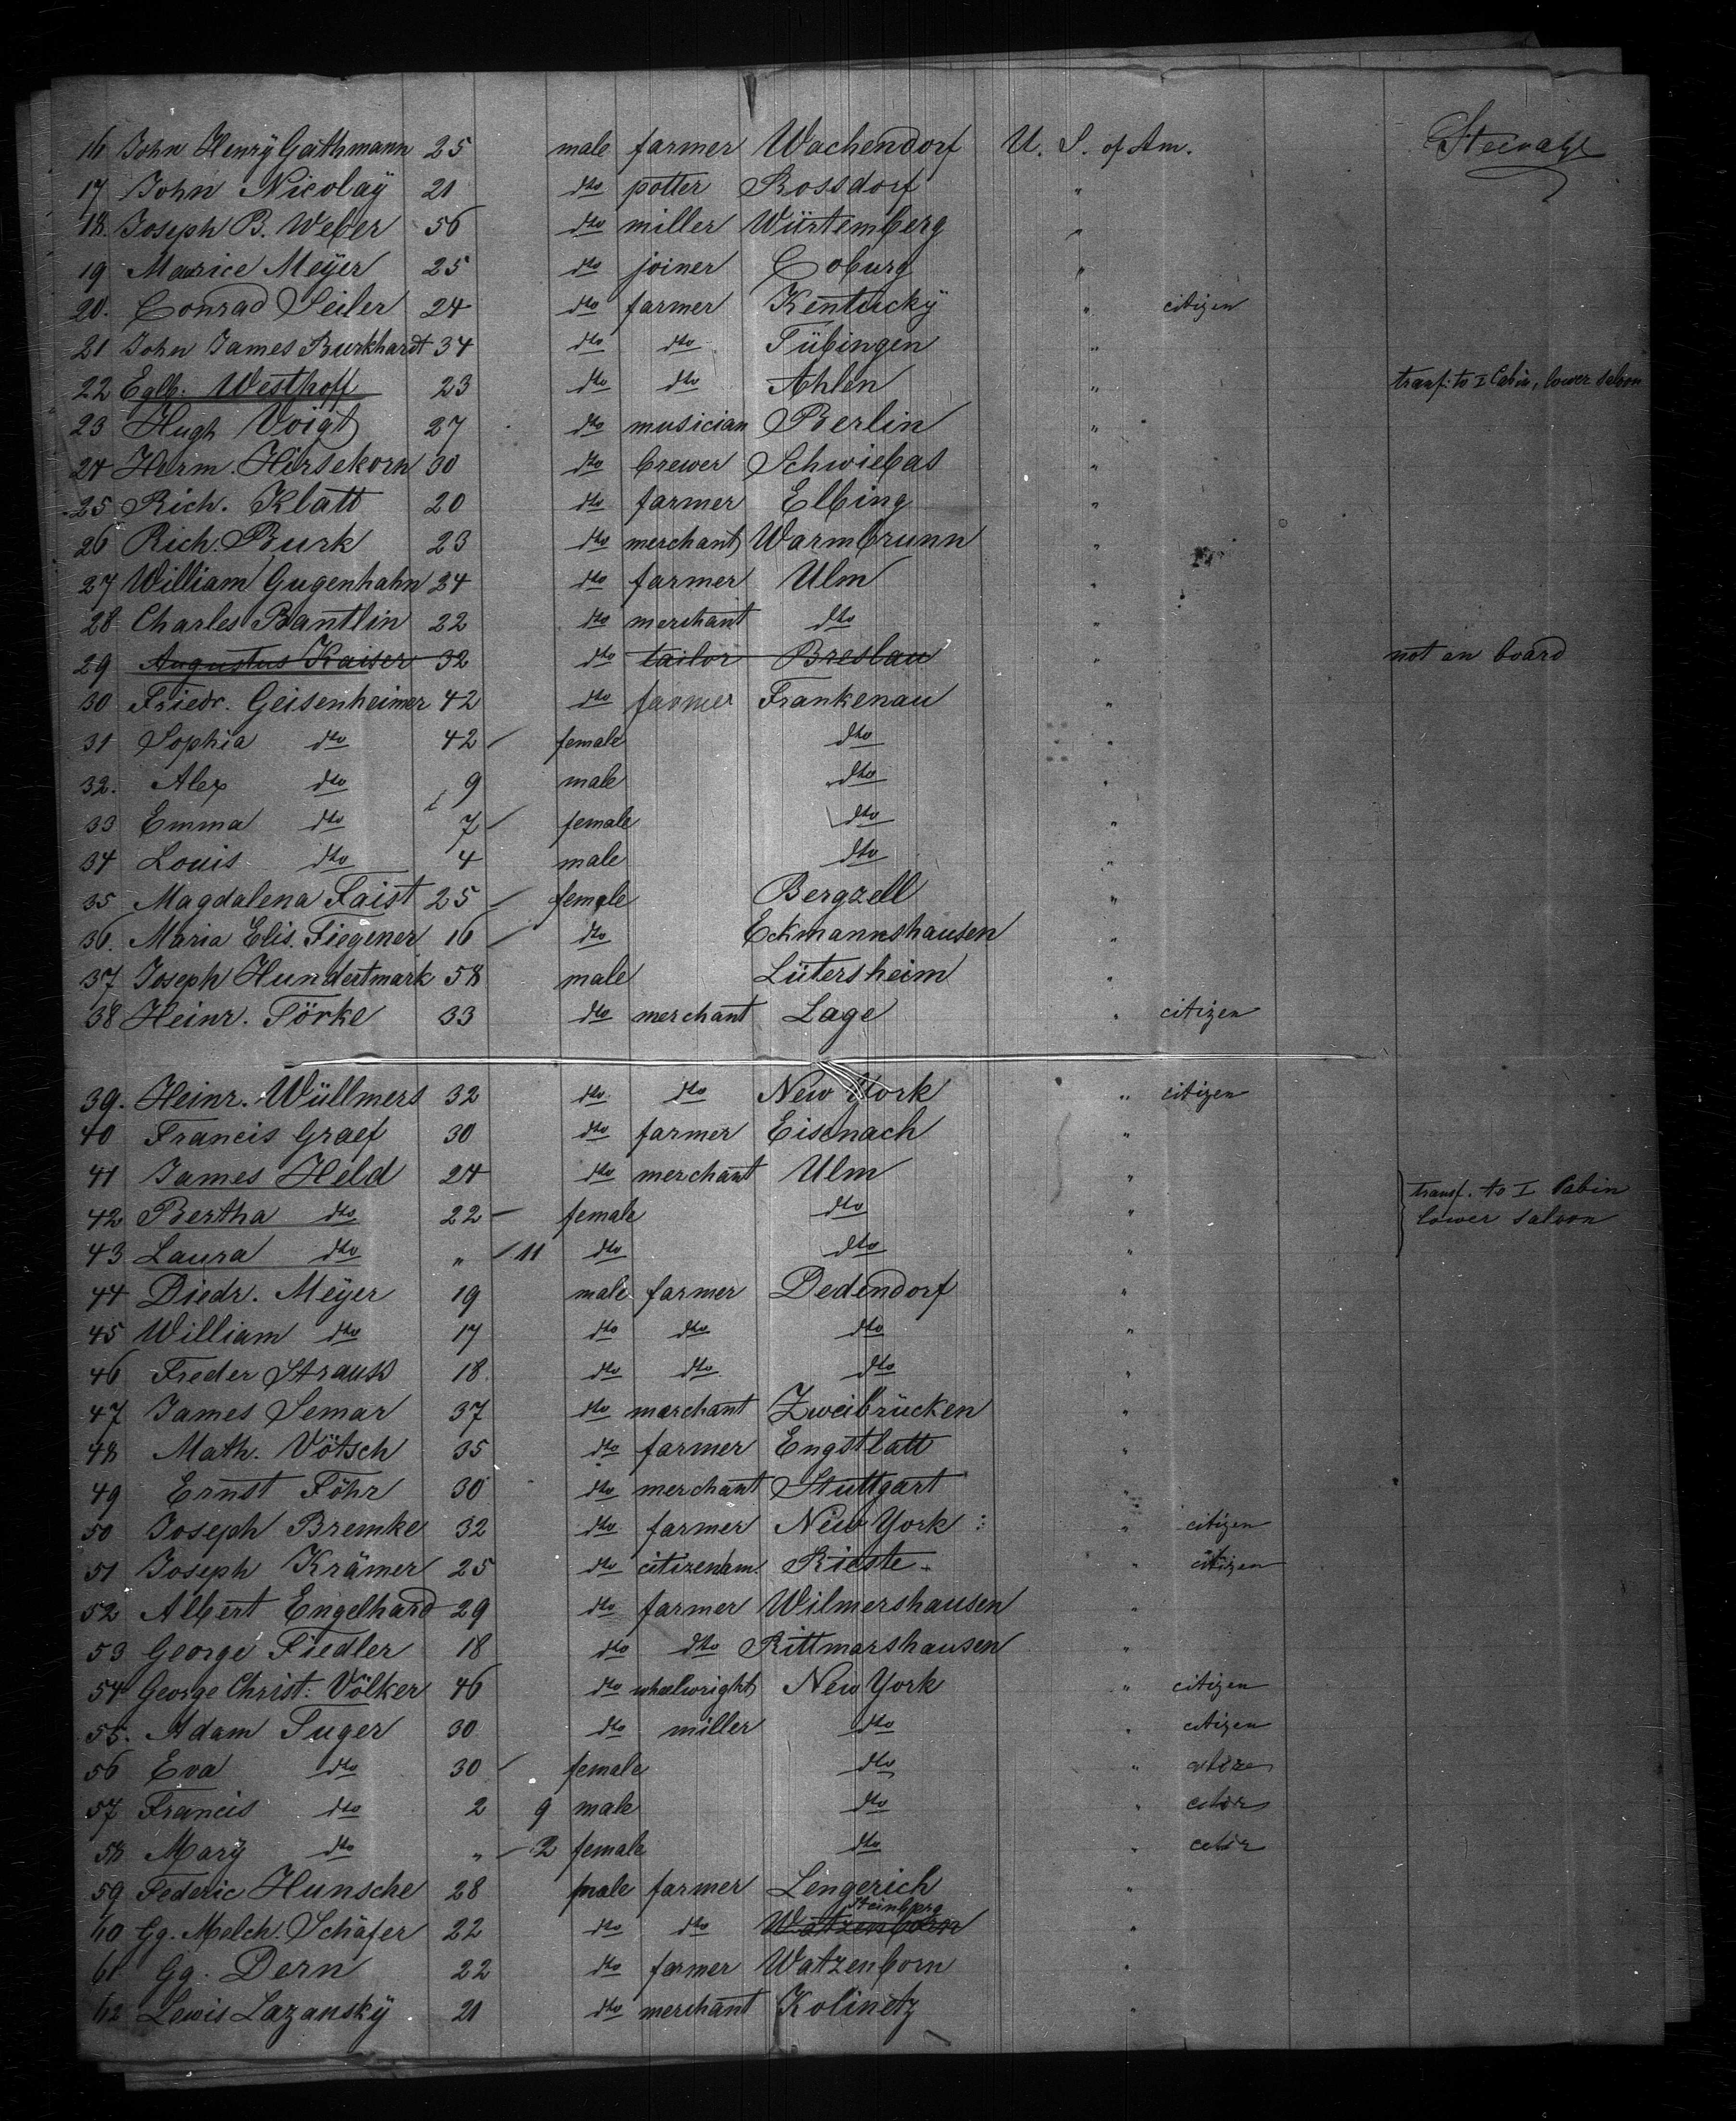 16 John Henrÿ Gathmann 25 male farmer Wachendorf U. S. of Am. Steerage
17 John Nicolaÿ 21 dto potter Rossdorf "
18. Joseph B. Weber 56 dto miller Würtemberg "
19 Maurice Meÿer 25 dto joiner Coburg "
20. Conrad Seiler 24 dto farmer Kentuckÿ " citizen
21 John James Burkhardt 34 dto dto Tübingen "
22 Eglb. Westhoff 23 dto dto Ahlen " transf: to I Cabin, lower saloon
23 Hugh Voigt 27 dto musician Berlin "
24 Herm. Hirsekorn 30 dto brewer Schwiebas "
25 Rich. Klatt 20 dto farmer Elbing "
26 Rich. Burk 23 dto merchant Warmbrunn "
27 William Gugenhahn 24 dto farmer Ulm "
28 Charles Bantlin 22 dto merchant dto "
29 Augustus Kaiser 32 dto tailor Breslau " not on board
30 Friedr. Geisenheimer 42 dto farmer Frankenau "
31 Sophia dto 42 female dto "
32. Alex dto 9 male dto "
33 Emma dto 7 female dto "
34 Louis dto 4 male dto "
35 Magdalena Faist 25 female Bergzell "
36. Maria Elis. Fiegener 16 dto Eckmannshausen "
37 Joseph Hundertmark 58 male Lütersheim "
38 Heinr. Törke 33 dto merchant Lage " citizen
39. Heinr. Wüllmers 32 dto dto New York " citizen
40 Francis Graef 30 dto farmer Eisenach "
41 James Held 24 dto merchant Ulm "
42 Bertha dto 22 female dto " transf. to I Cabin
43 Laura dto " 11 dto dto " lower saloon
44 Diedr. Meÿer 19 male farmer Dedendorf "
45 William dto 17 dto dto dto "
46 Freder Strauss 18. dto dto dto "
47 James Semar 37 dto merchant Zweibrücken "
48 Math. Vötsch 35 dto farmer Engstlatt "
49 Ernst Föhr 30 dto merchant Stuttgart "
50 Joseph Bremke 32 dto farmer New York " citizen
51 Joseph Krämer 25 dto citizenam. Rieste " citizen
52 Albert Engelhard 29 dto farmer Wilmershausen "
53 George Fiedler 18 dto dto Rittmarshausen "
54 George Christ: Völker 46 dto wheelwright New York " citizen
55. Adam Suger 30 dto miller dto " citizen
56 Eva dto 30 female dto "
57 Francis dto 2 9 male dto "
58 Marÿ dto " 2 female dto "
59 Federic Hunsche 28 male farmer Lengerich "
60 Gg. Melch. Schäfer 22 dto dto Watzenborn Steinberg "
61 Gg. Dern 22 dto farmer Watzenborn "
62 Lewis Lazanskÿ 21 dto merchant Kolinetz "